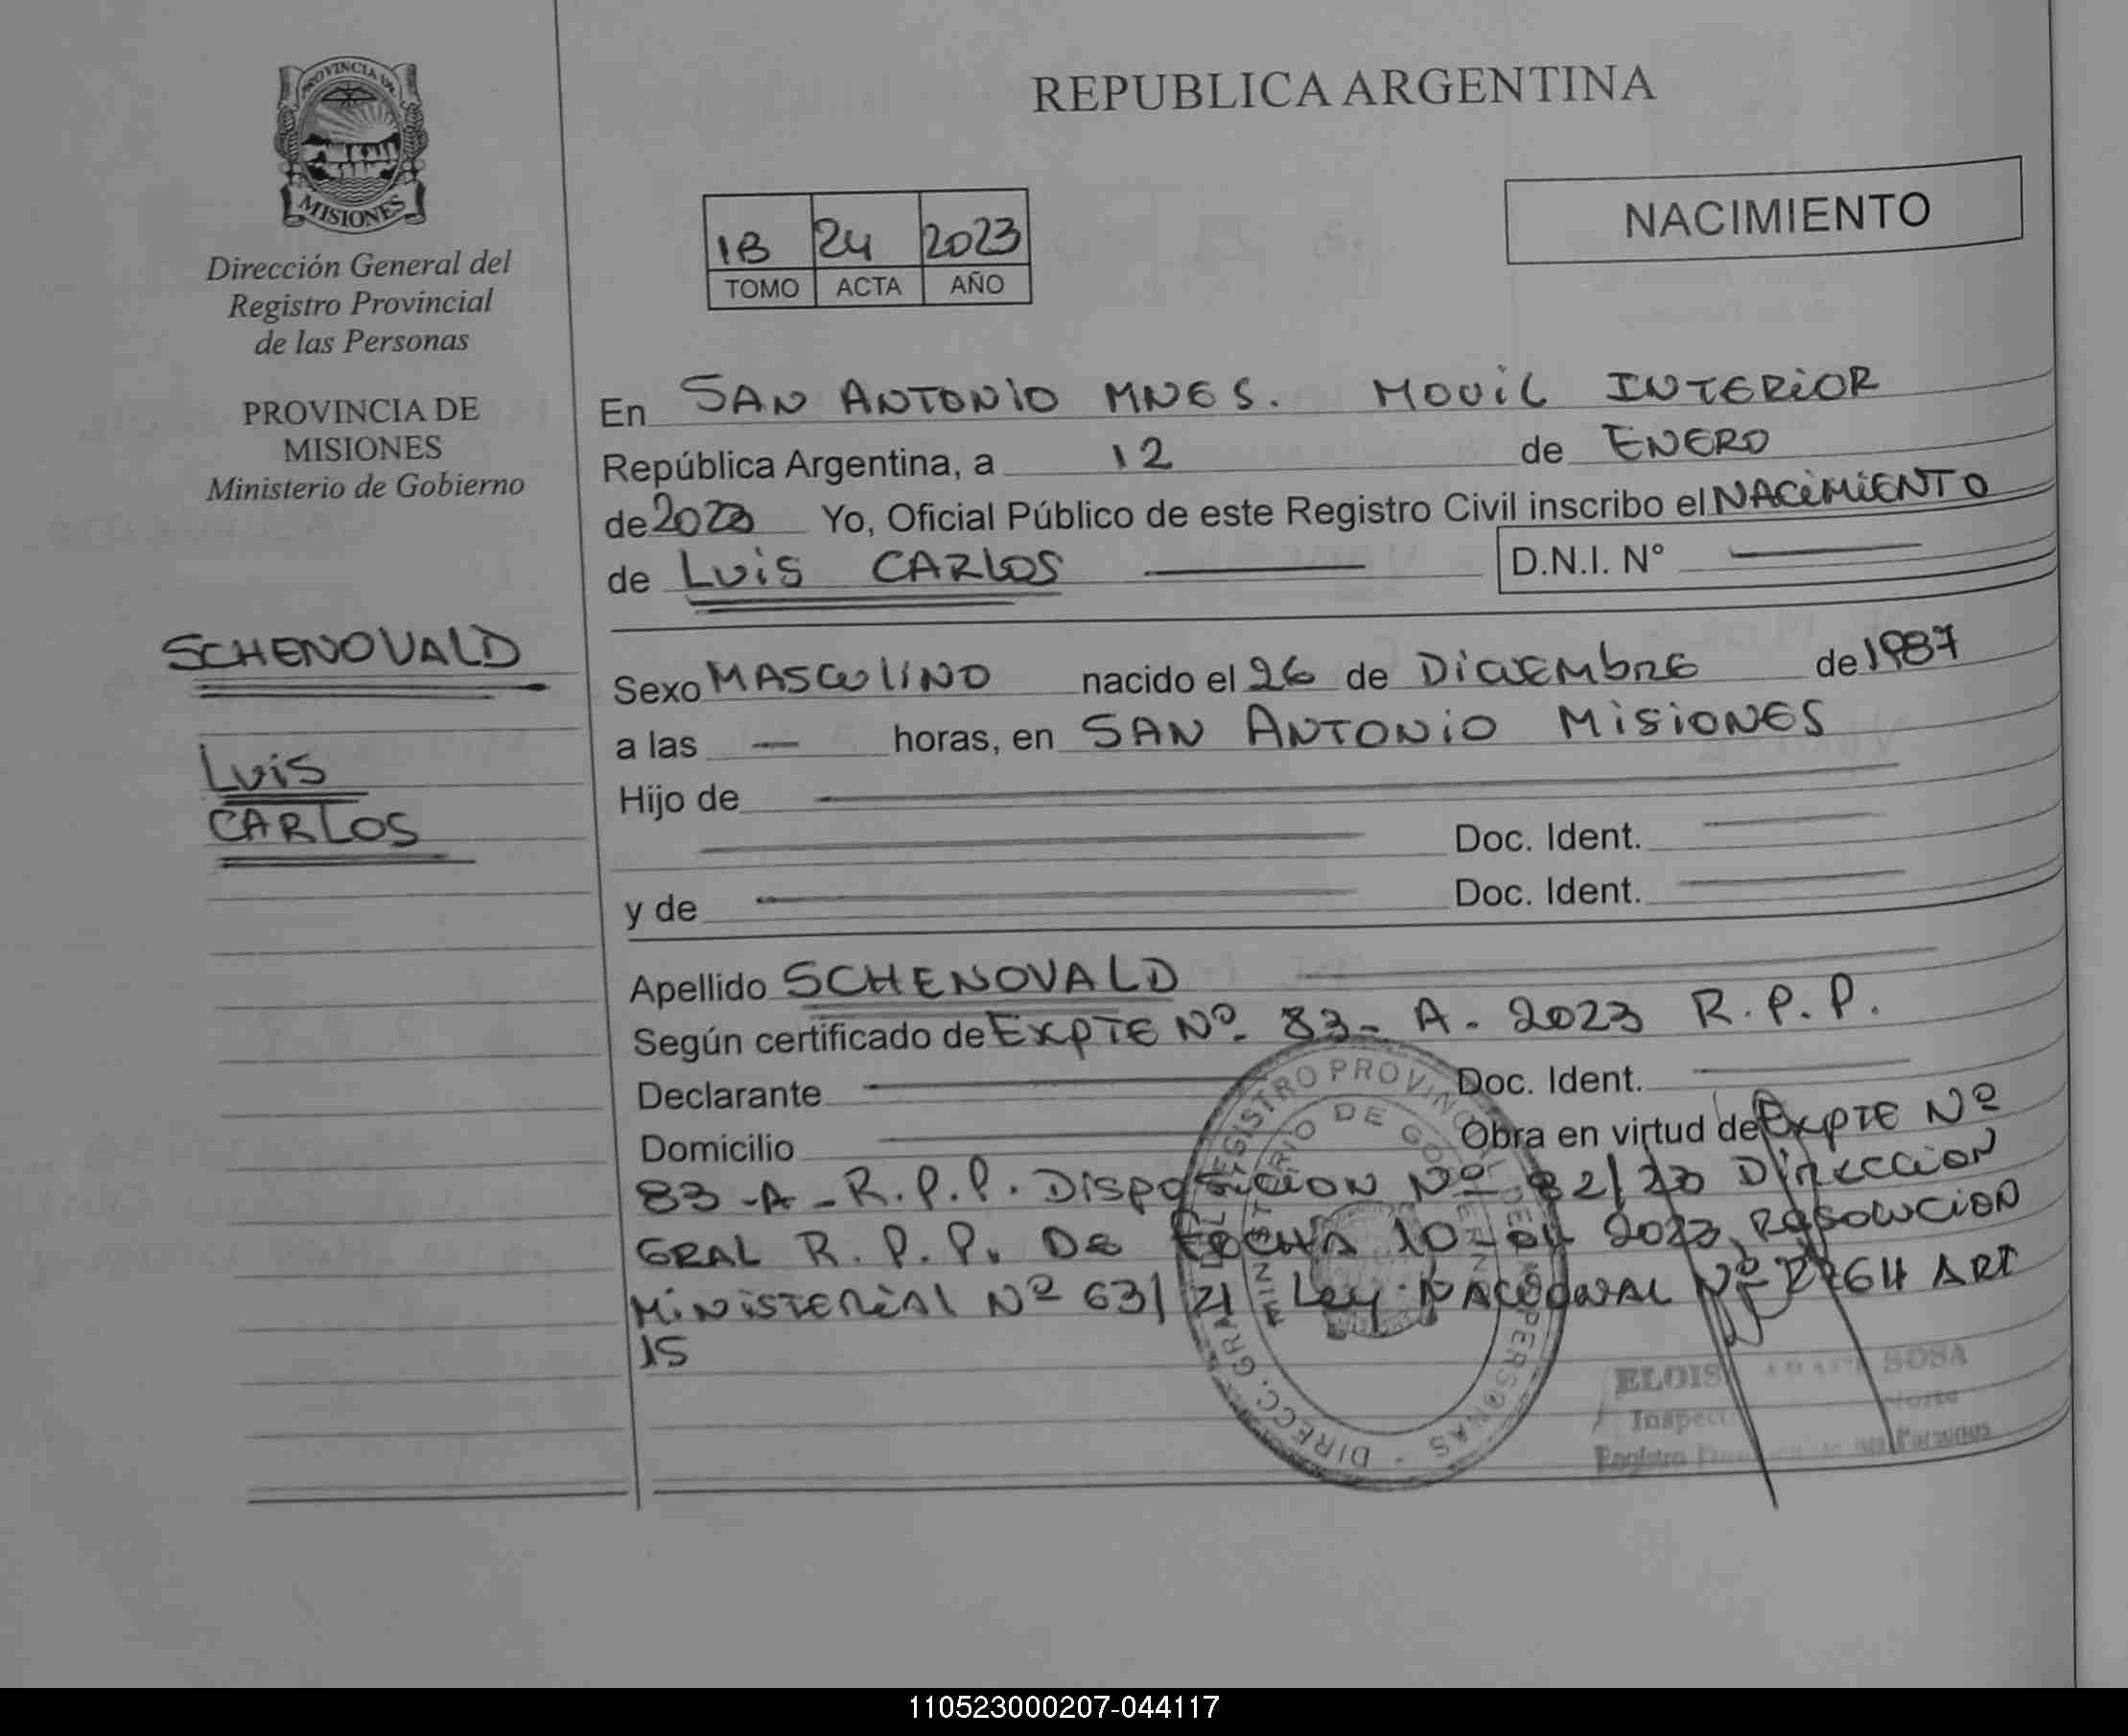 PROVINCIA DE
MISIONES
Dirección General del
Registro Provincial
de las Personas
PROVINCIA DE
MISIONES
Ministerio de Gobierno
SCHENOVALD
Luis
CARLOS
REPUBLICA ARGENTINA
NACIMIENTO
1B 24 2023
TOMO ACTA AÑO
En SAN ANTONIO MNES. MOVIL INTERIOR
República Argentina, a 12 de ENERO
de 2023 Yo, Oficial Público de este Registro Civil inscribo el NACIMIENTO
de LUIS CARLOS D.N.I. N°
Sexo MASCULINO nacido el 26 de DICIEMBRE de 1987
a las — horas, en SAN ANTONIO MISIONES
Hijo de
Doc. Ident.
y de Doc. Ident.
Apellido SCHENOVALD
Según certificado de EXPTE Nº 83-A-2023 R.P.P.
Declarante Doc. Ident.
Domicilio Obra en virtud de EXPTE Nº
83-A-R.P.P. DISPOSICION Nº 82/23 DIRECCION
GRAL R.P.P. DE FECHA 10 2023, RESOLUCION
MINISTERIAL Nº 631/21 Ley NACIONAL Nº ART
15
DIRECC. GRAL. DEL REGISTRO PROVINCIAL DE LAS PERSONAS
MINISTERIO DE GOBIERNO
SOSA
Registro Personas
110523000207-044117